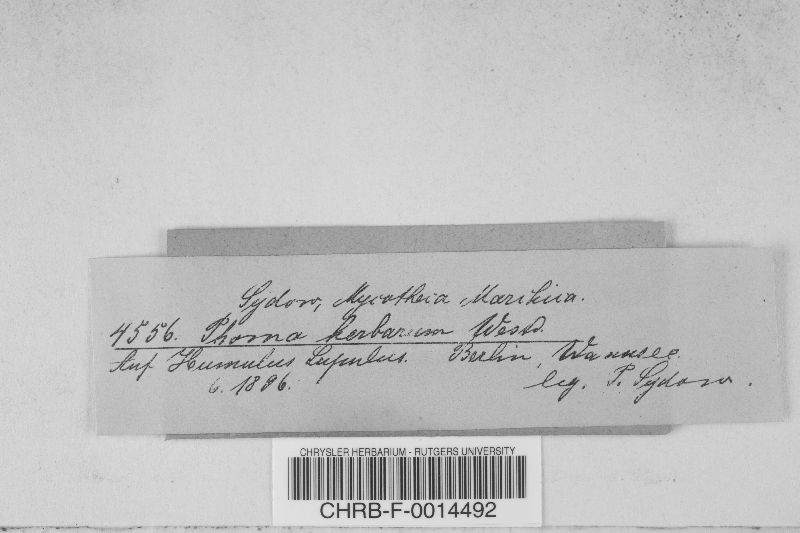 Sydow, Mycotheca Marchica.
4556. Phoma herbarum Westd.
Auf Humulus Lupulus. Berlin, Wannsee.
6. 1896. leg. P. Sydow.
CHRYSLER HERBARIUM - RUTGERS UNIVERSITY
CHRB-F-0014492